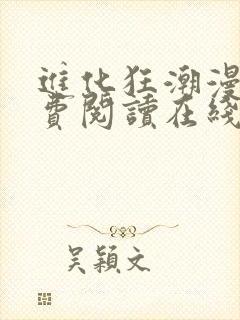 進化狂潮漫
費閱讀在綫
吴穎文